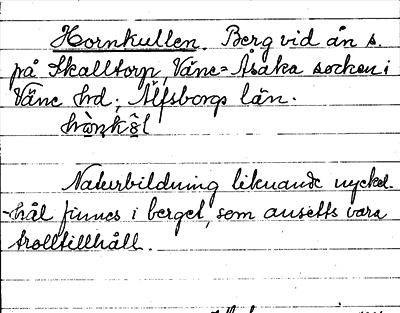 Hornkullen. Berg vid ån s.
på Skalltorp, Väne-Åsaka socken i
Väne hd, Älfsborgs län.
Naturbildning liknande nyckel-
-hål finnes i berget, som ansetts vara
trolltillhåll.